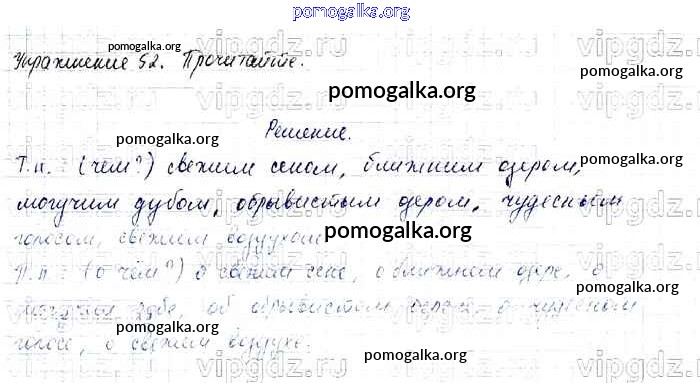 pomogalka.org
Упражнение 52. Прочитайте.
pomogalka.org
pomogalka.org
pomogalka.org
vipgdz.ru
Решение.
pomogalka.org
pomogalka.org
Т.п. (чем?) свежим сеном, ближним озером,
pomogalka.org
могучим дубом, обрывистым озером, чудесным
pomogalka.org
pomogalka.org
голосом, свежим воздухом.
П.п. (о чём?) о свежем сене, о ближнем озере, о
могучем дубе, об обрывистом озере, о чудесном
pomogalka.org
pomogalka.org
голосе, о свежем воздухе.
pomogalka.org
vipgdz.ru